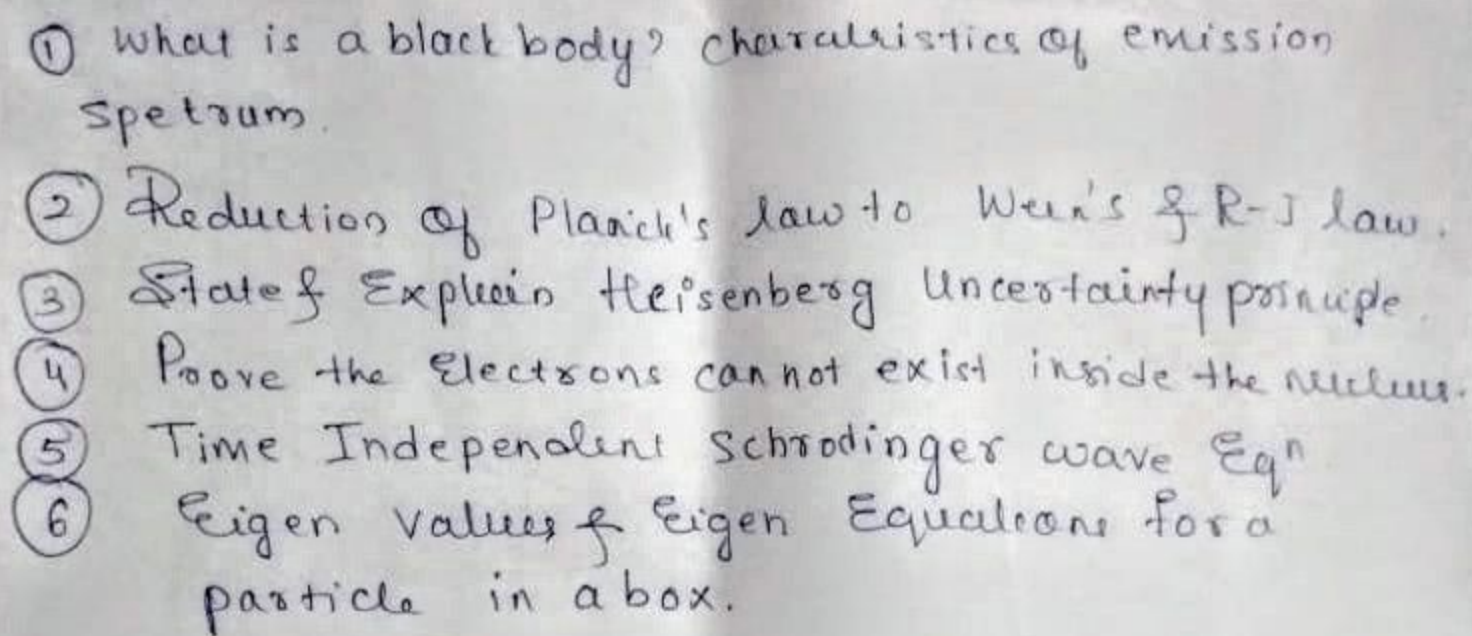 ① What is a black body? Charatristics of emission
spetrum.
② Reduction of Planck's law to Wein's & R-J law.
③ State & Explain Heisenberg Uncertainty prinuple.
④ Proove the Electrons can not exist inside the nucleus.
⑤ Time Independent Schrodinger wave Eqⁿ
⑥ Eigen values & Eigen Equations for a
particle in a box.